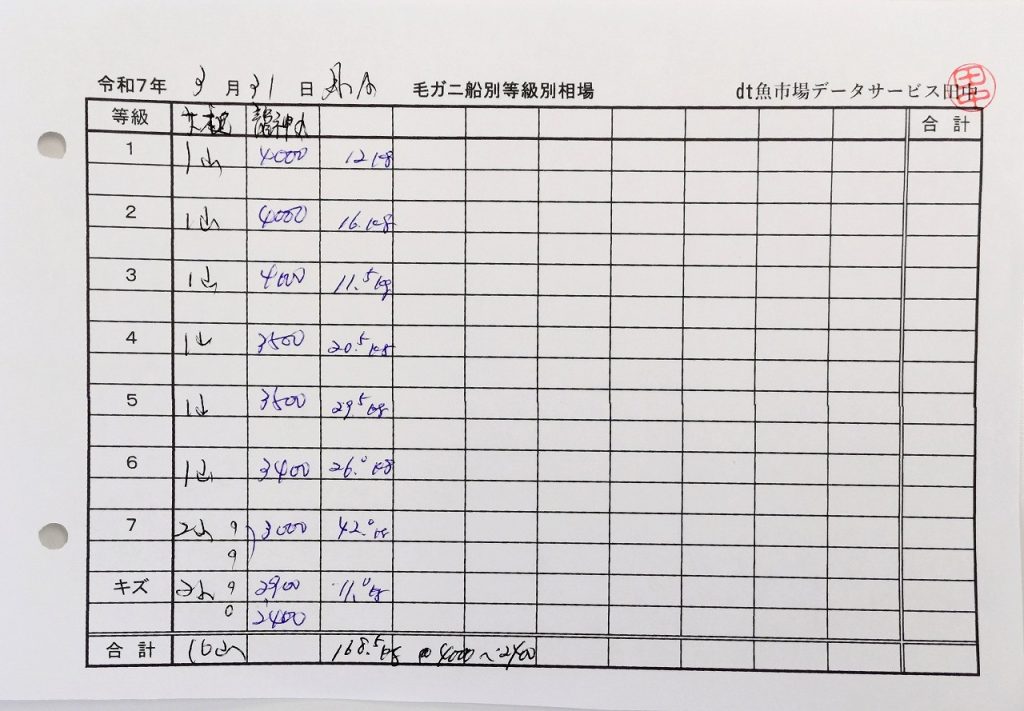 令和7年 3月31日 毛ガニ船別等級別相場 dt魚市場データサービス田中
等級 龍神丸 合計
1 1山 4000 12kg
2 1山 4000 16.kg
3 1山 4000 11.5kg
4 1山 3500 20.5kg
5 1山 3500 29.5kg
6 1山 3400 26.0kg
7 2山 9 3000 42.0kg
9
キズ 2山 9 2900 11.0kg
0 2400
合計 10山 168.5kg @4000〜2400